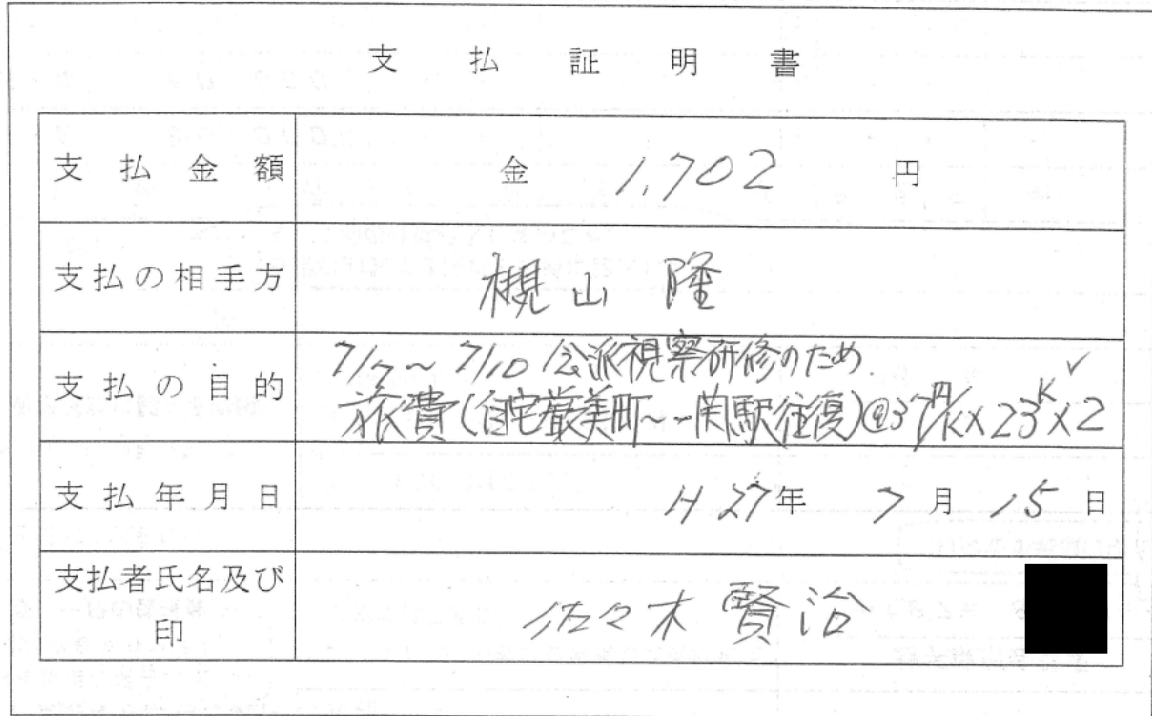 支払証明書
支払金額 金 1,702 円
支払の相手方 槻山 隆
支払の目的 7/7~7/10 会派視察研修のため.
旅費(自宅厳美町~一関駅往復)@37円/K×23K×2
支払年月日 H27年 7月 15日
支払者氏名及び 佐々木 賢治
印